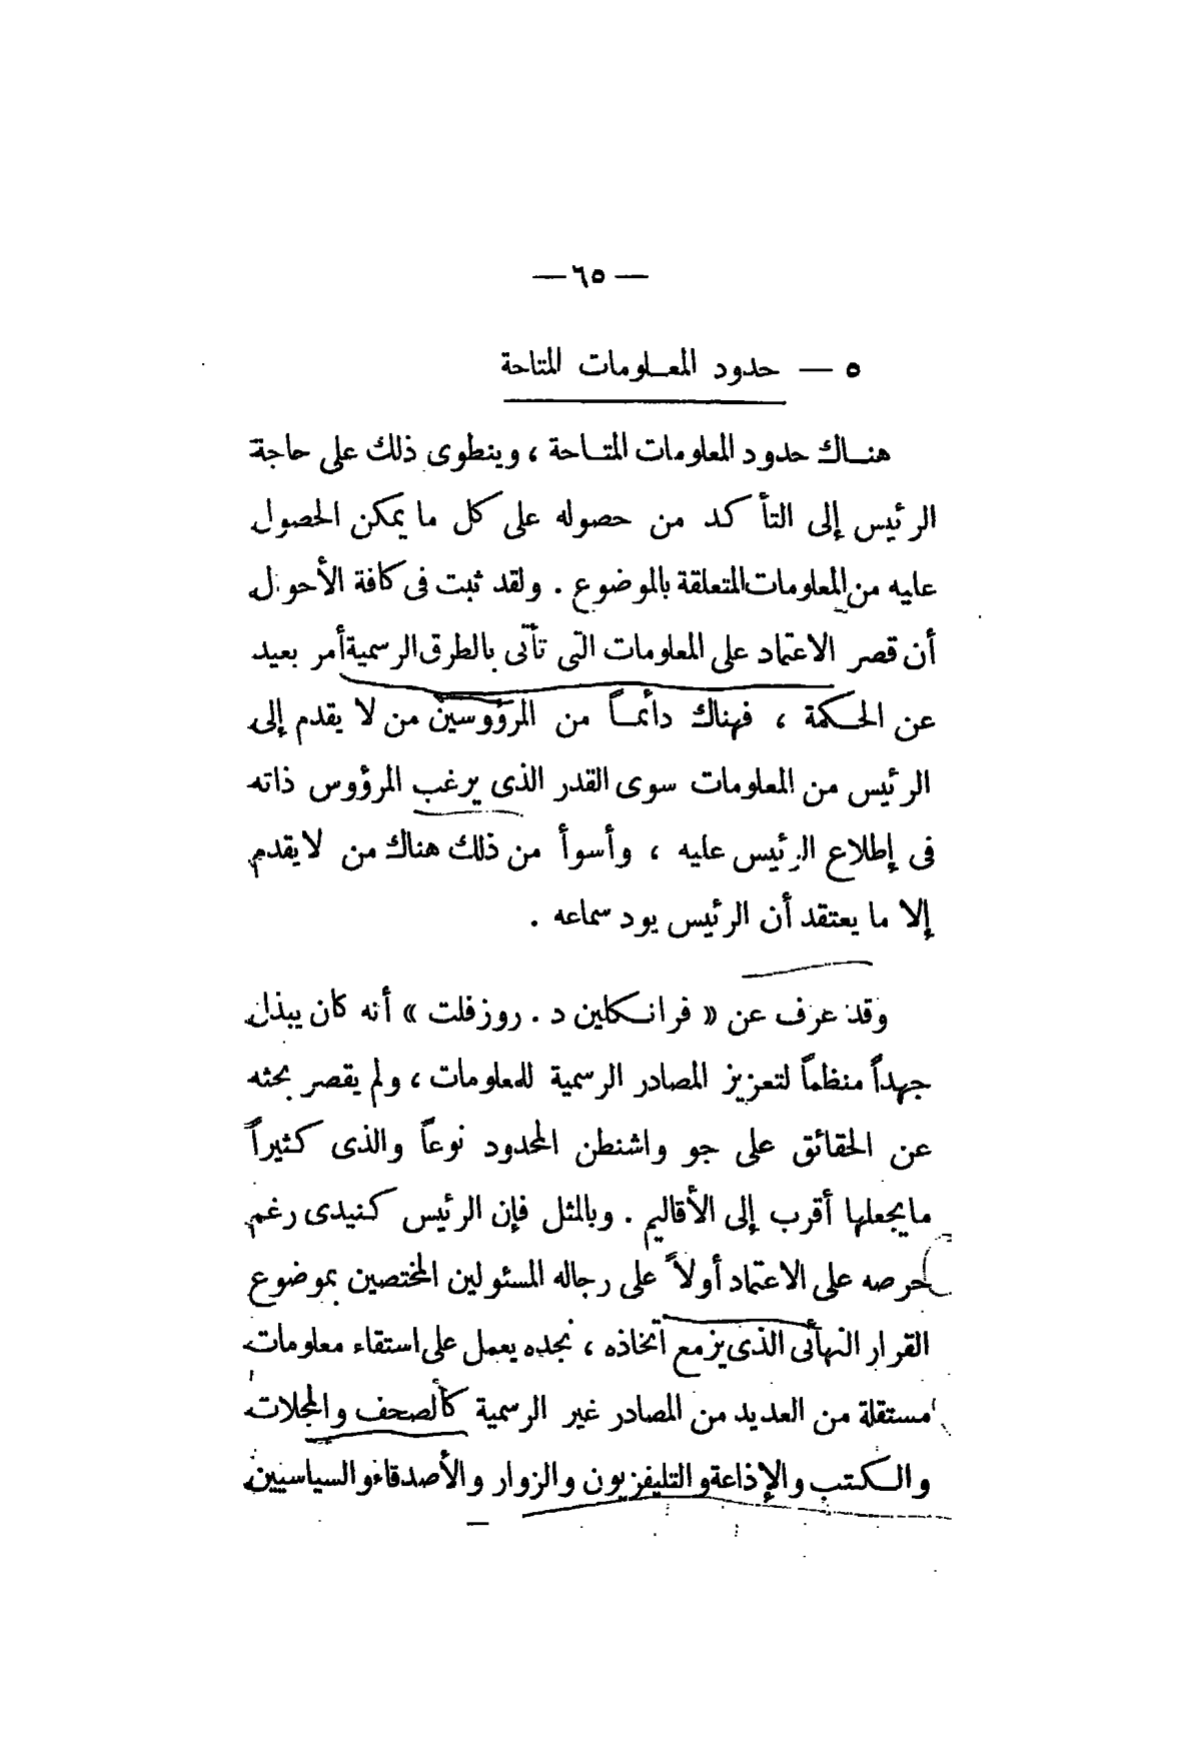 — ٦٥ —
٥ — حدود المعلومات المتاحة
هناك حدود المعلومات المتاحة ، وينطوى ذلك على حاجة
الرئيس إلى التأكد من حصوله على كل ما يمكن الحصول
عليه من المعلومات المتعلقة بالموضوع . ولقد ثبت فى كافة الأحوال
أن قصر الاعتماد على المعلومات التى تأتى بالطرق الرسمية أمر بعيد
عن الحكمة ، فهناك دائماً من المرؤوسين من لا يقدم إلى
الرئيس من المعلومات سوى القدر الذى يرغب المرؤوس ذاته
فى إطلاع الرئيس عليه ، وأسوأ من ذلك هناك من لا يقدم
إلا ما يعتقد أن الرئيس يود سماعه .
وقد عرف عن « فرانكلين د . روزفلت » أنه كان يبذل
جهداً منظماً لتعزيز المصادر الرسمية للمعلومات ، ولم يقصر بحثه
عن الحقائق على جو واشنطن المحدود نوعاً والذى كثيراً
ما يجعلها أقرب إلى الأقاليم . وبالمثل فإن الرئيس كنيدى رغم
حرصه على الاعتماد أولاً على رجاله المسئولين المختصين بموضوع
القرار النهائى الذى يزمع اتخاذه ، نجده يعمل على استقاء معلومات
مستقلة من العديد من المصادر غير الرسمية كالصحف والمجلات
والكتب والإذاعة والتليفزيون والزوار والأصدقاء والسياسيين